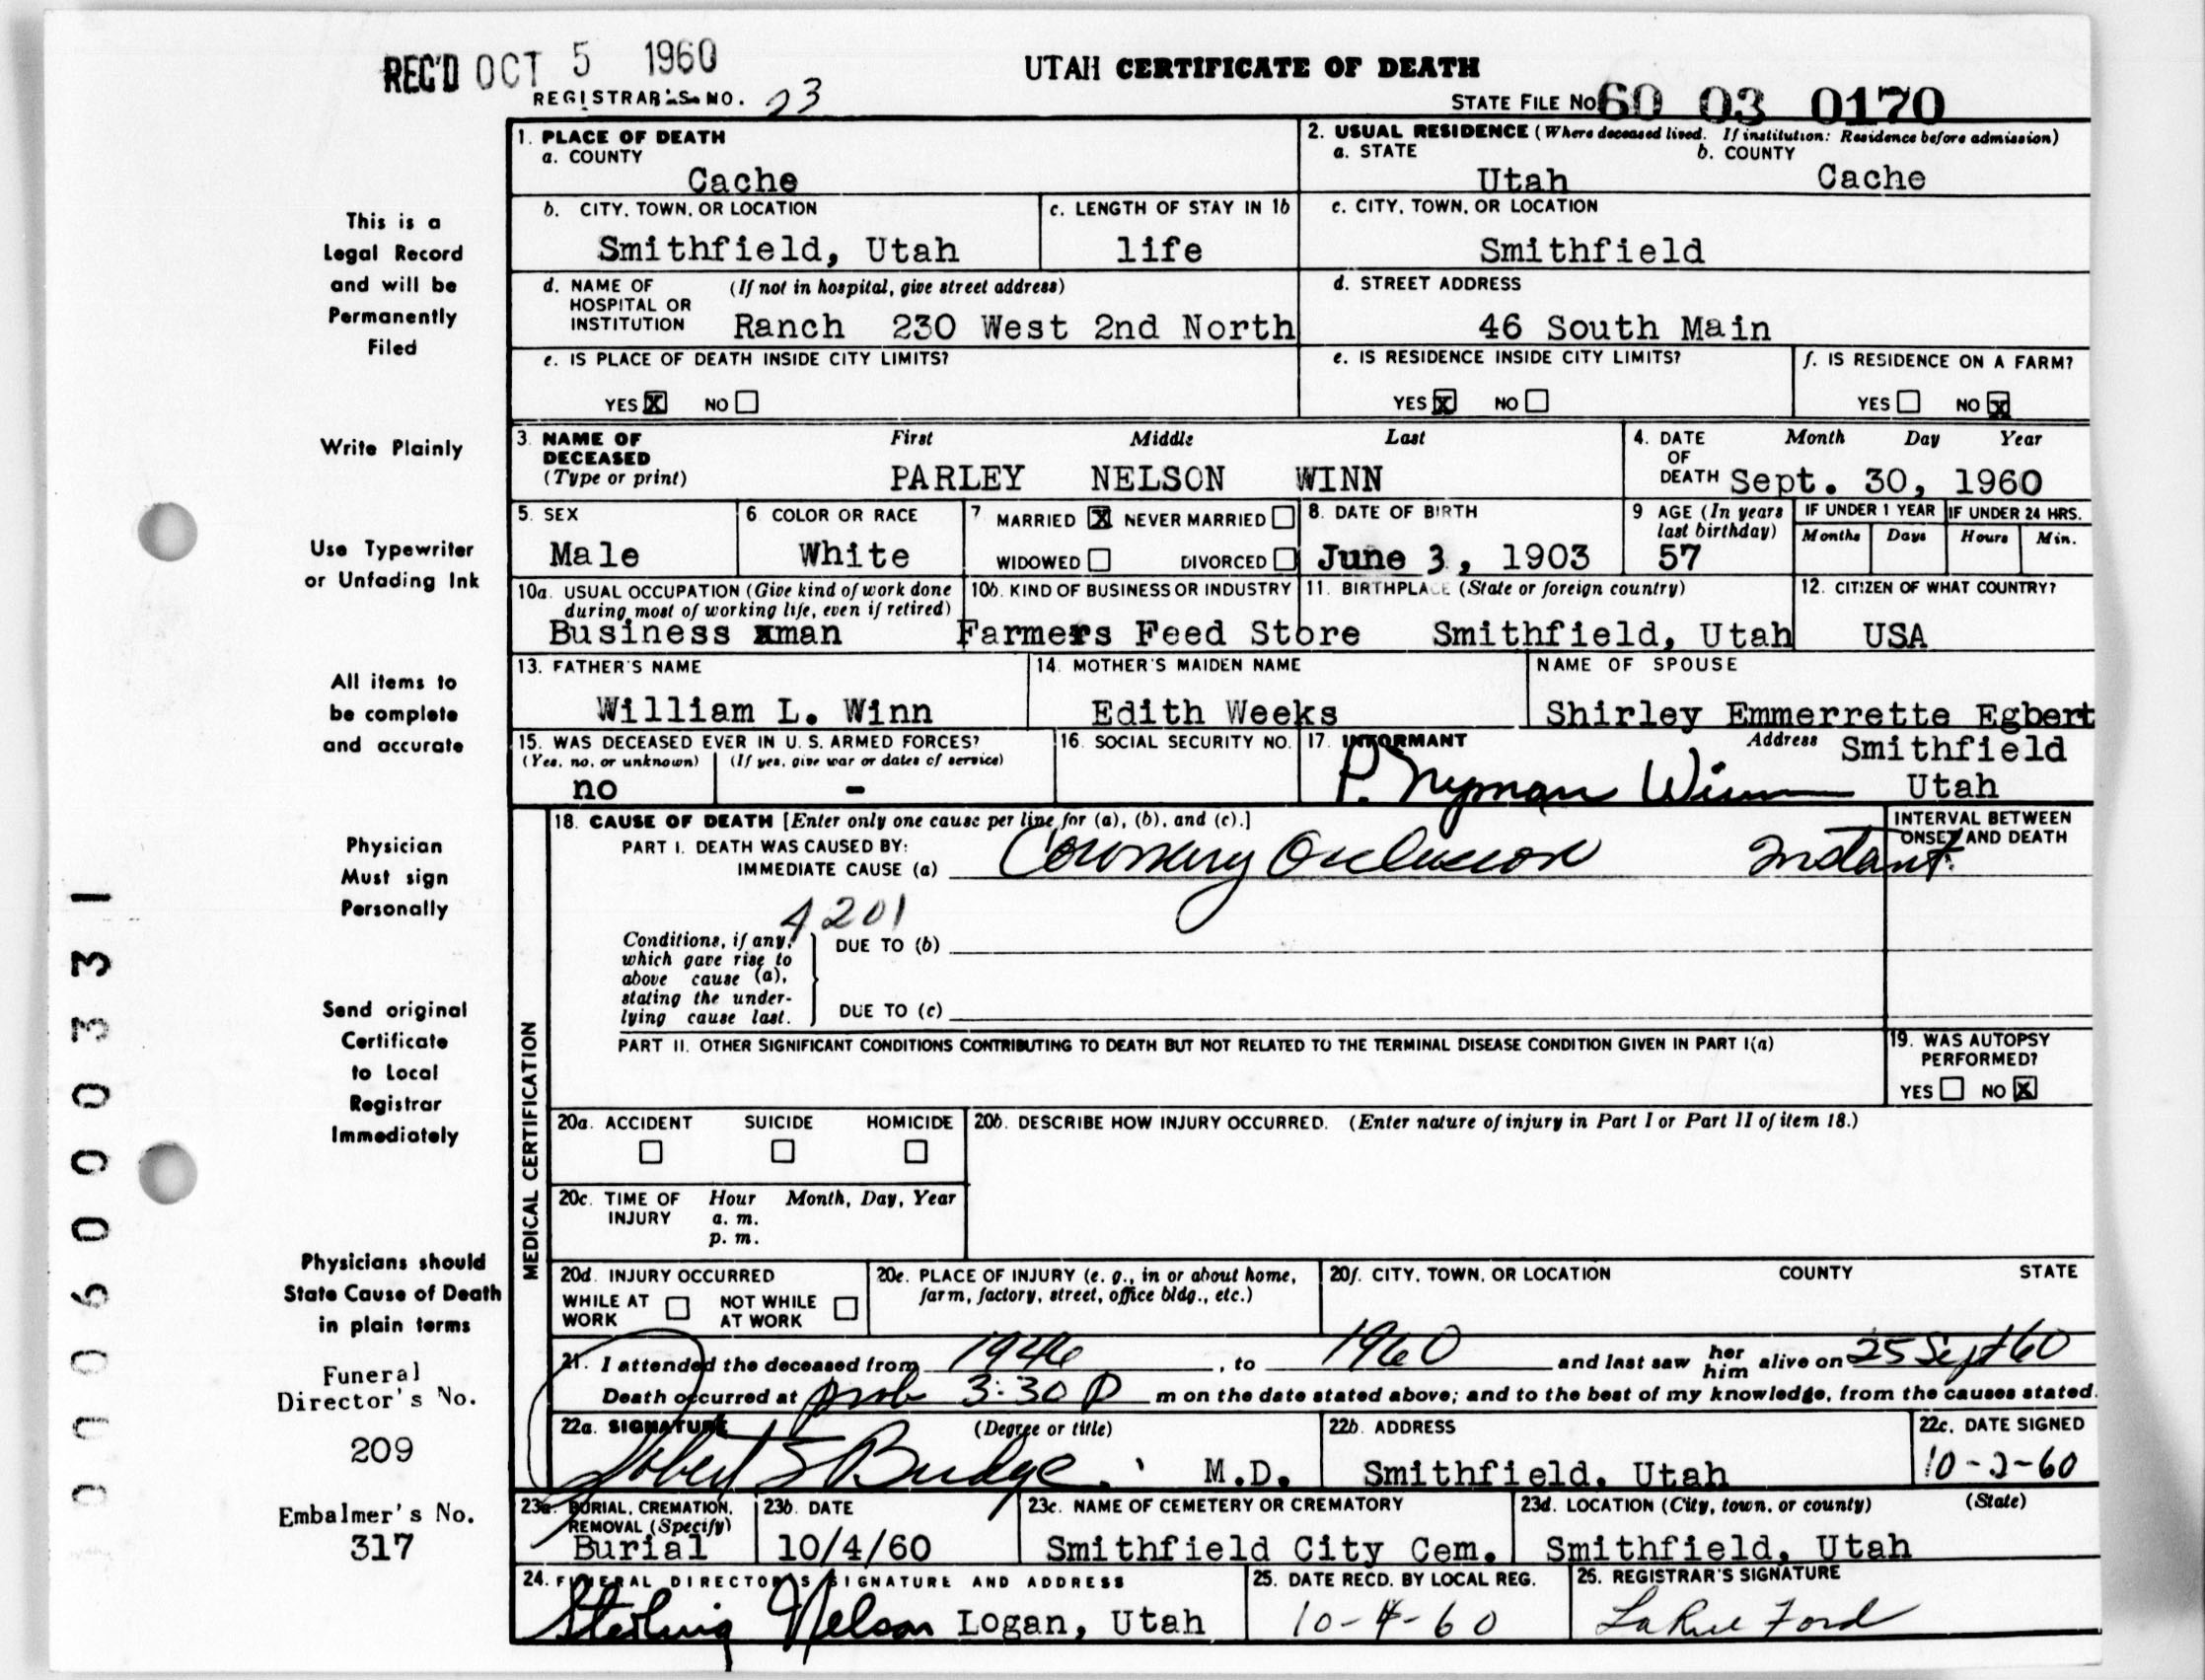 REC'D OCT 5 1960
UTAH CERTIFICATE OF DEATH
REGISTRAR'S NO. 23
STATE FILE NO. 60 03 0170
1. PLACE OF DEATH
a. COUNTY
Cache
2. USUAL RESIDENCE (Where deceased lived. If institution: Residence before admission)
a. STATE b. COUNTY
Utah Cache
b. CITY, TOWN, OR LOCATION
Smithfield, Utah
c. LENGTH OF STAY IN 1b
life
c. CITY, TOWN, OR LOCATION
Smithfield
d. NAME OF (If not in hospital, give street address)
HOSPITAL OR
INSTITUTION Ranch 230 West 2nd North
d. STREET ADDRESS
46 South Main
e. IS PLACE OF DEATH INSIDE CITY LIMITS?
YES X NO
e. IS RESIDENCE INSIDE CITY LIMITS?
YES X NO
f. IS RESIDENCE ON A FARM?
YES NO X
3. NAME OF DECEASED (Type or print)
First Middle Last
PARLEY NELSON WINN
4. DATE OF DEATH
Month Day Year
Sept. 30, 1960
5. SEX
Male
6 COLOR OR RACE
White
7 MARRIED X NEVER MARRIED
WIDOWED DIVORCED
8. DATE OF BIRTH
June 3, 1903
9 AGE (In years last birthday)
57
IF UNDER 1 YEAR IF UNDER 24 HRS.
Months Days Hours Min.
10a. USUAL OCCUPATION (Give kind of work done
during most of working life, even if retired)
Business xman
10b. KIND OF BUSINESS OR INDUSTRY
Farmers Feed Store
11. BIRTHPLACE (State or foreign country)
Smithfield, Utah
12. CITIZEN OF WHAT COUNTRY?
USA
13. FATHER'S NAME
William L. Winn
14. MOTHER'S MAIDEN NAME
Edith Weeks
NAME OF SPOUSE
Shirley Emmerrette Egbert
15. WAS DECEASED EVER IN U. S. ARMED FORCES?
(Yes, no, or unknown) (If yes, give war or dates of service)
no -
16. SOCIAL SECURITY NO.
17. INFORMANT Address Smithfield
P. Nyman Winn Utah
18. CAUSE OF DEATH [Enter only one cause per line for (a), (b), and (c).]
INTERVAL BETWEEN
ONSET AND DEATH
PART I. DEATH WAS CAUSED BY:
IMMEDIATE CAUSE (a) Coronary Occlusion Instant.
4201
Conditions, if any,
which gave rise to
above cause (a),
stating the under-
lying cause last.
DUE TO (b)
DUE TO (c)
PART II. OTHER SIGNIFICANT CONDITIONS CONTRIBUTING TO DEATH BUT NOT RELATED TO THE TERMINAL DISEASE CONDITION GIVEN IN PART I(a)
19. WAS AUTOPSY
PERFORMED?
YES NO X
MEDICAL CERTIFICATION
20a. ACCIDENT SUICIDE HOMICIDE
20b. DESCRIBE HOW INJURY OCCURRED. (Enter nature of injury in Part I or Part II of item 18.)
20c. TIME OF INJURY
Hour Month, Day, Year
a. m.
p. m.
20d. INJURY OCCURRED
WHILE AT WORK NOT WHILE AT WORK
20e. PLACE OF INJURY (e. g., in or about home,
farm, factory, street, office bldg., etc.)
20f. CITY, TOWN, OR LOCATION COUNTY STATE
21. I attended the deceased from 1946, to 1960 and last saw her him alive on 25 Sept 60
Death occurred at prob 3:30 P m on the date stated above; and to the best of my knowledge, from the causes stated.
22a. SIGNATURE (Degree or title)
Robert S Budge. M.D.
22b. ADDRESS
Smithfield, Utah
22c. DATE SIGNED
10-2-60
23a. BURIAL, CREMATION,
REMOVAL (Specify)
Burial
23b. DATE
10/4/60
23c. NAME OF CEMETERY OR CREMATORY
Smithfield City Cem.
23d. LOCATION (City, town, or county) (State)
Smithfield, Utah
24. FUNERAL DIRECTOR'S SIGNATURE AND ADDRESS
Sterling Nelson Logan, Utah
25. DATE RECD. BY LOCAL REG.
10-4-60
25. REGISTRAR'S SIGNATURE
LaRue Ford
This is a
Legal Record
and will be
Permanently
Filed
Write Plainly
Use Typewriter
or Unfading Ink
All items to
be complete
and accurate
Physician
Must sign
Personally
Send original
Certificate
to Local
Registrar
Immediately
Physicians should
State Cause of Death
in plain terms
Funeral
Director's No.
209
Embalmer's No.
317
0006000331